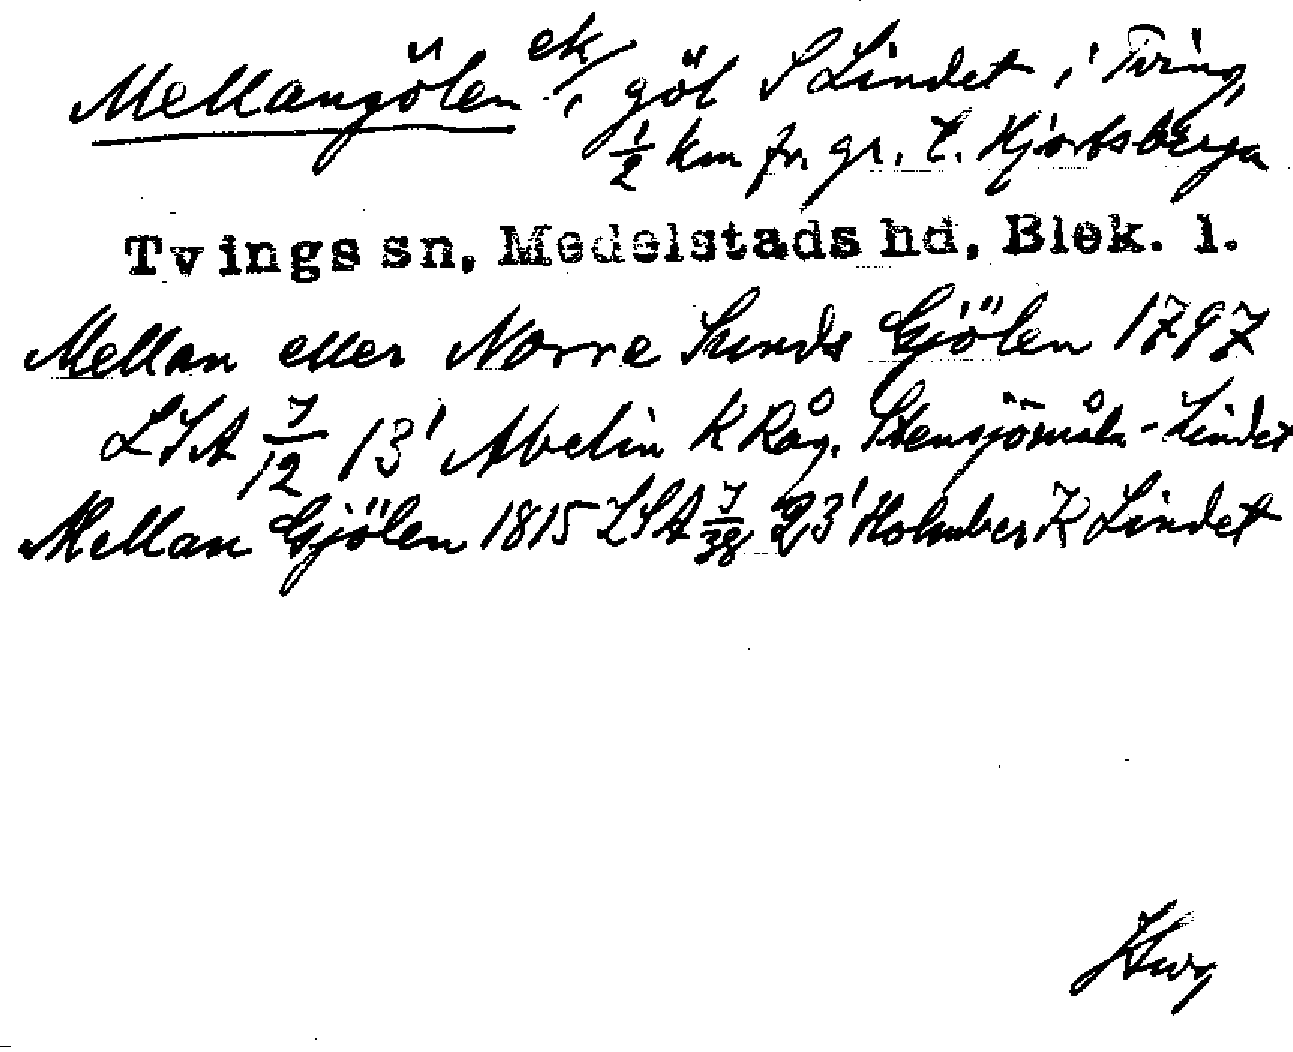 Mellangölen ek/, göl S Lindet i Tving,
1/2 km fr. gr. t. Hjortsberga
Tvings sn, Medelstads hd, Blek. l.
Mellan eller Norre Sunds Gjölen 1797
LSA 7/12 13' Abelin K Råg. Stensjömåla-Lindet
Mellan Gjölen 1815 LSA 7/38 23' Holmber K Lindet